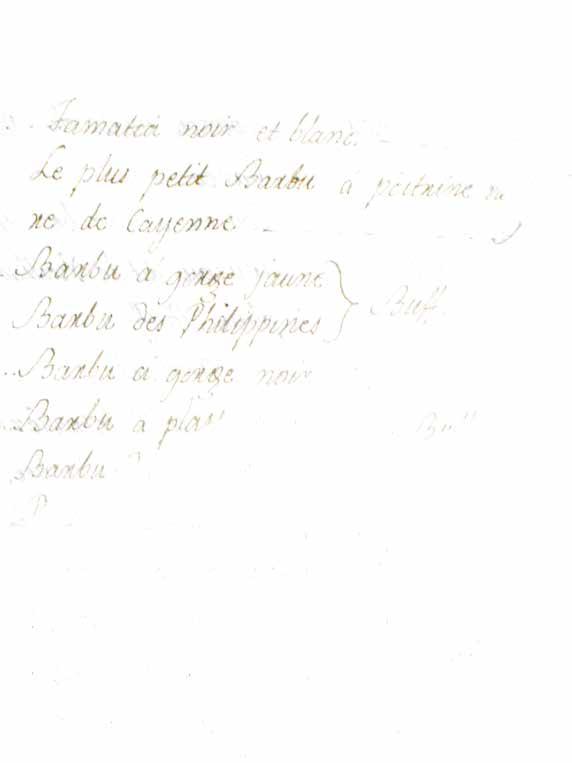 Tamatia noir et blanc.
Le plus petit Barbu à poitrine
re de Cayenne
Barbu à gorge jaune
Barbu des Philippines } Buff.
Barbu à gorge noir
Barbu a
Barbu